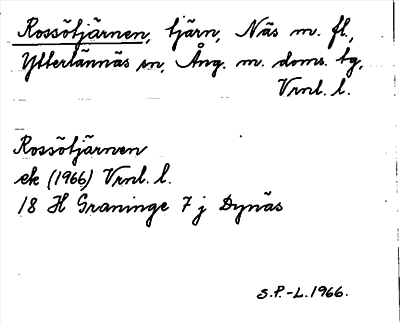 Rossötjärnen, tjärn, Näs m. fl.,
Ytterlännäs sn, Ång. m. doms. tg,
Vrnl. l.
Rossötjärnen
ek (1966) Vrnl. l.
18 H Graninge 7 j Dynäs
S.P.-L. 1966.